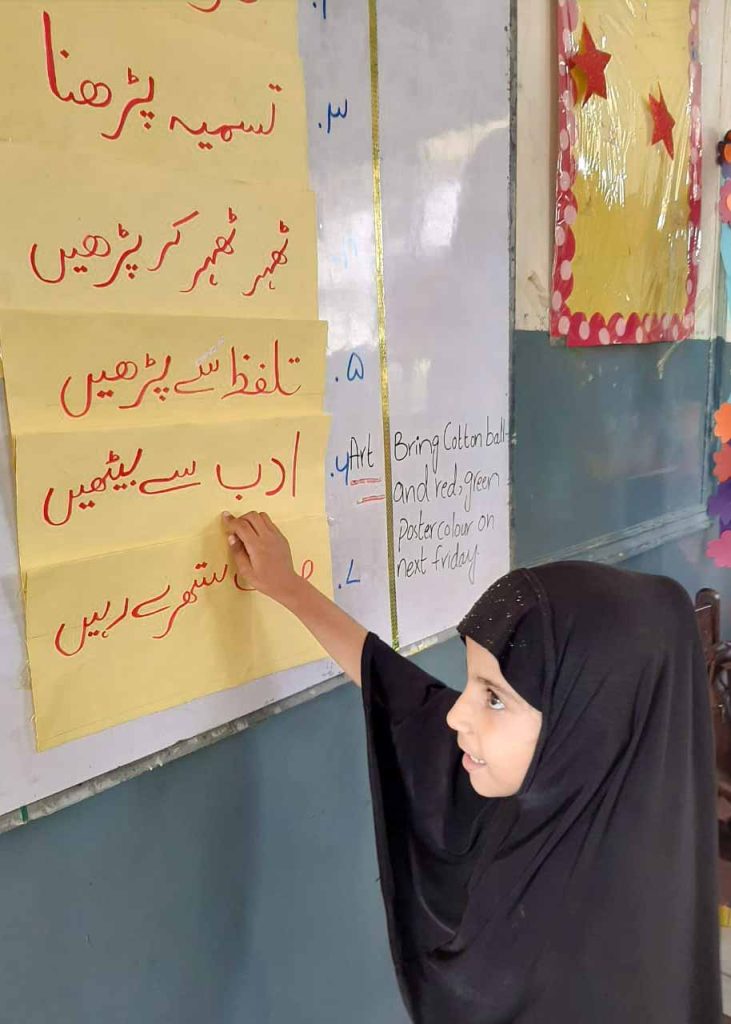 ۳. تسمیہ پڑھنا
ٹھہر ٹھہر کر پڑھیں
۵. تلفظ سے پڑھیں
۶. ادب سے بیٹھیں
۷. ستھرے رہیں
Art
Bring Cotton ball
and red, green
poster colour on
next friday